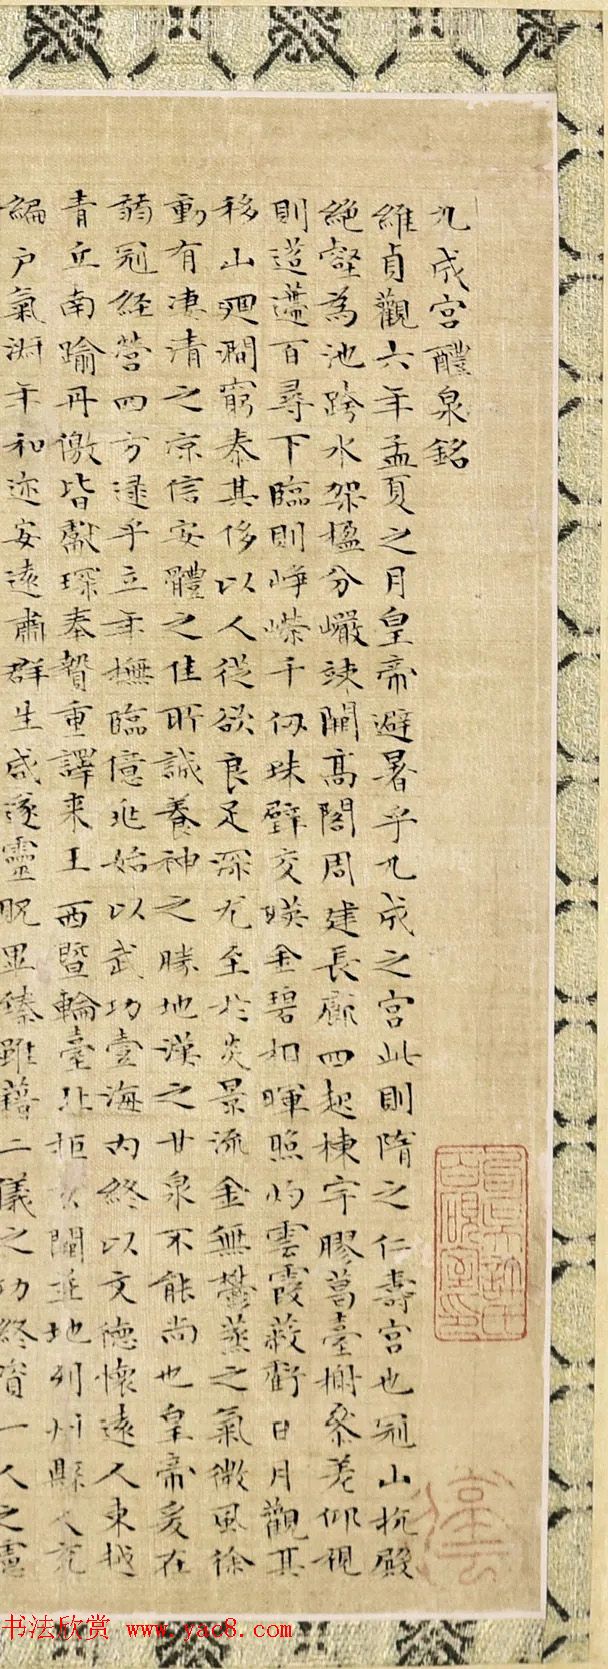 九成宮醴泉銘
維貞觀六年孟夏之月皇帝避暑乎九成之宮此則隋之仁壽宮也冠山抗殿
絕壑為池跨水架楹分巖竦闕高閣周建長廊四起棟宇膠葛臺榭參差仰視
則迢遰百尋下臨則崢嶸千仞珠壁交暎金碧相暉照灼雲霞蔽虧日月觀其
移山迴澗窮泰其侈以人從欲良足深尤至於炎景流金無鬱蒸之氣微風徐
動有淒清之涼信安體之佳所誠養神之勝地漢之甘泉不能尚也皇帝爰在
弱冠經營四方逯乎立年撫臨億兆始以武功壹海內終以文德懷遠人東越
青丘南踰丹儌皆獻琛奉贄重譯来王西暨輪臺北拒玄闕並地列州縣人充
編戶氣淑年和迩安遠肅群生咸遂靈貺畢臻雖藉二儀之功終資一人之慮
书法欣赏 www.yac8.com